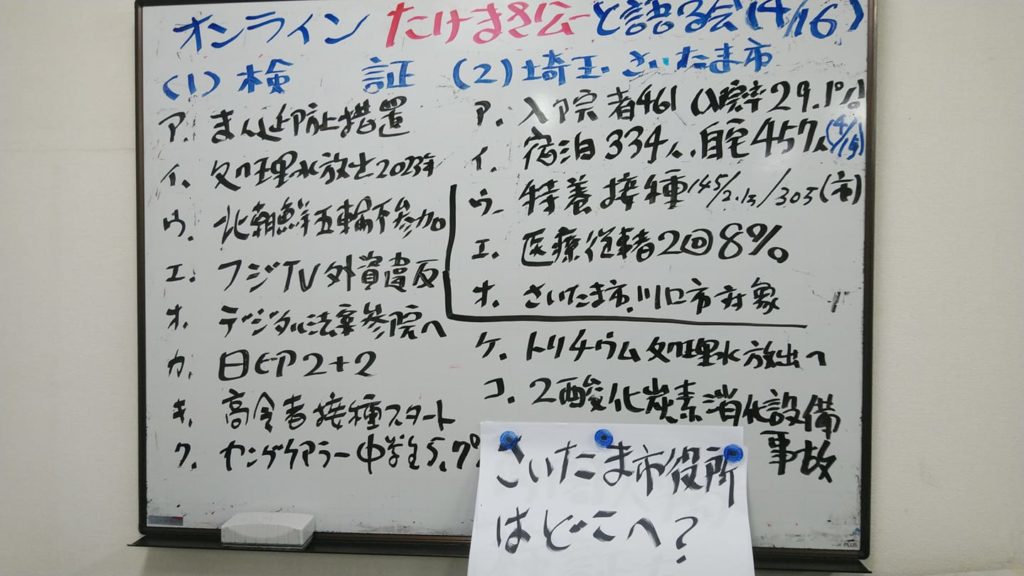 オンライン たけまさ公一と語る会(4/16)
(1) 検 証
ア. まん延防止措置
イ. 処理水放出2023年
ウ. 北朝鮮五輪不参加
エ. フジTV外資違反
オ. デジタル法案参院へ
カ. 日印2+2
キ. 高令者接種スタート
ク. ヤングケアラー中学生5.7%
(2) 埼玉・さいたま市
ア. 入院者461 入院率29.1%
イ. 宿泊334人.自宅457人(4/15)
ウ. 特養接種145/2.1万/303(市)
エ. 医療従事者2回8%
オ. さいたま市.川口市対象
ケ. トリチウム処理水放出へ
コ. 2酸化炭素消化設備
事故
さいたま市役所
はどこへ?